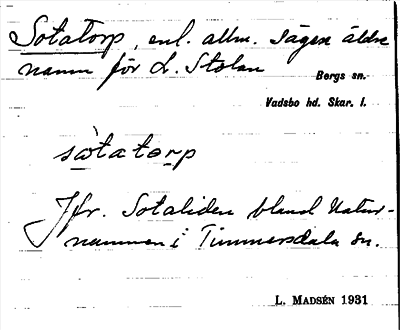 Sotatorp, enl. allm. sägen äldre
namn för L. Stolan
Bergs sn.
Vadsbo hd. Skar. l.
sòtatorp
Jfr. Sotaliden bland Natur-
namnen i Timmersdala sn.
L. MADSÉN 1931